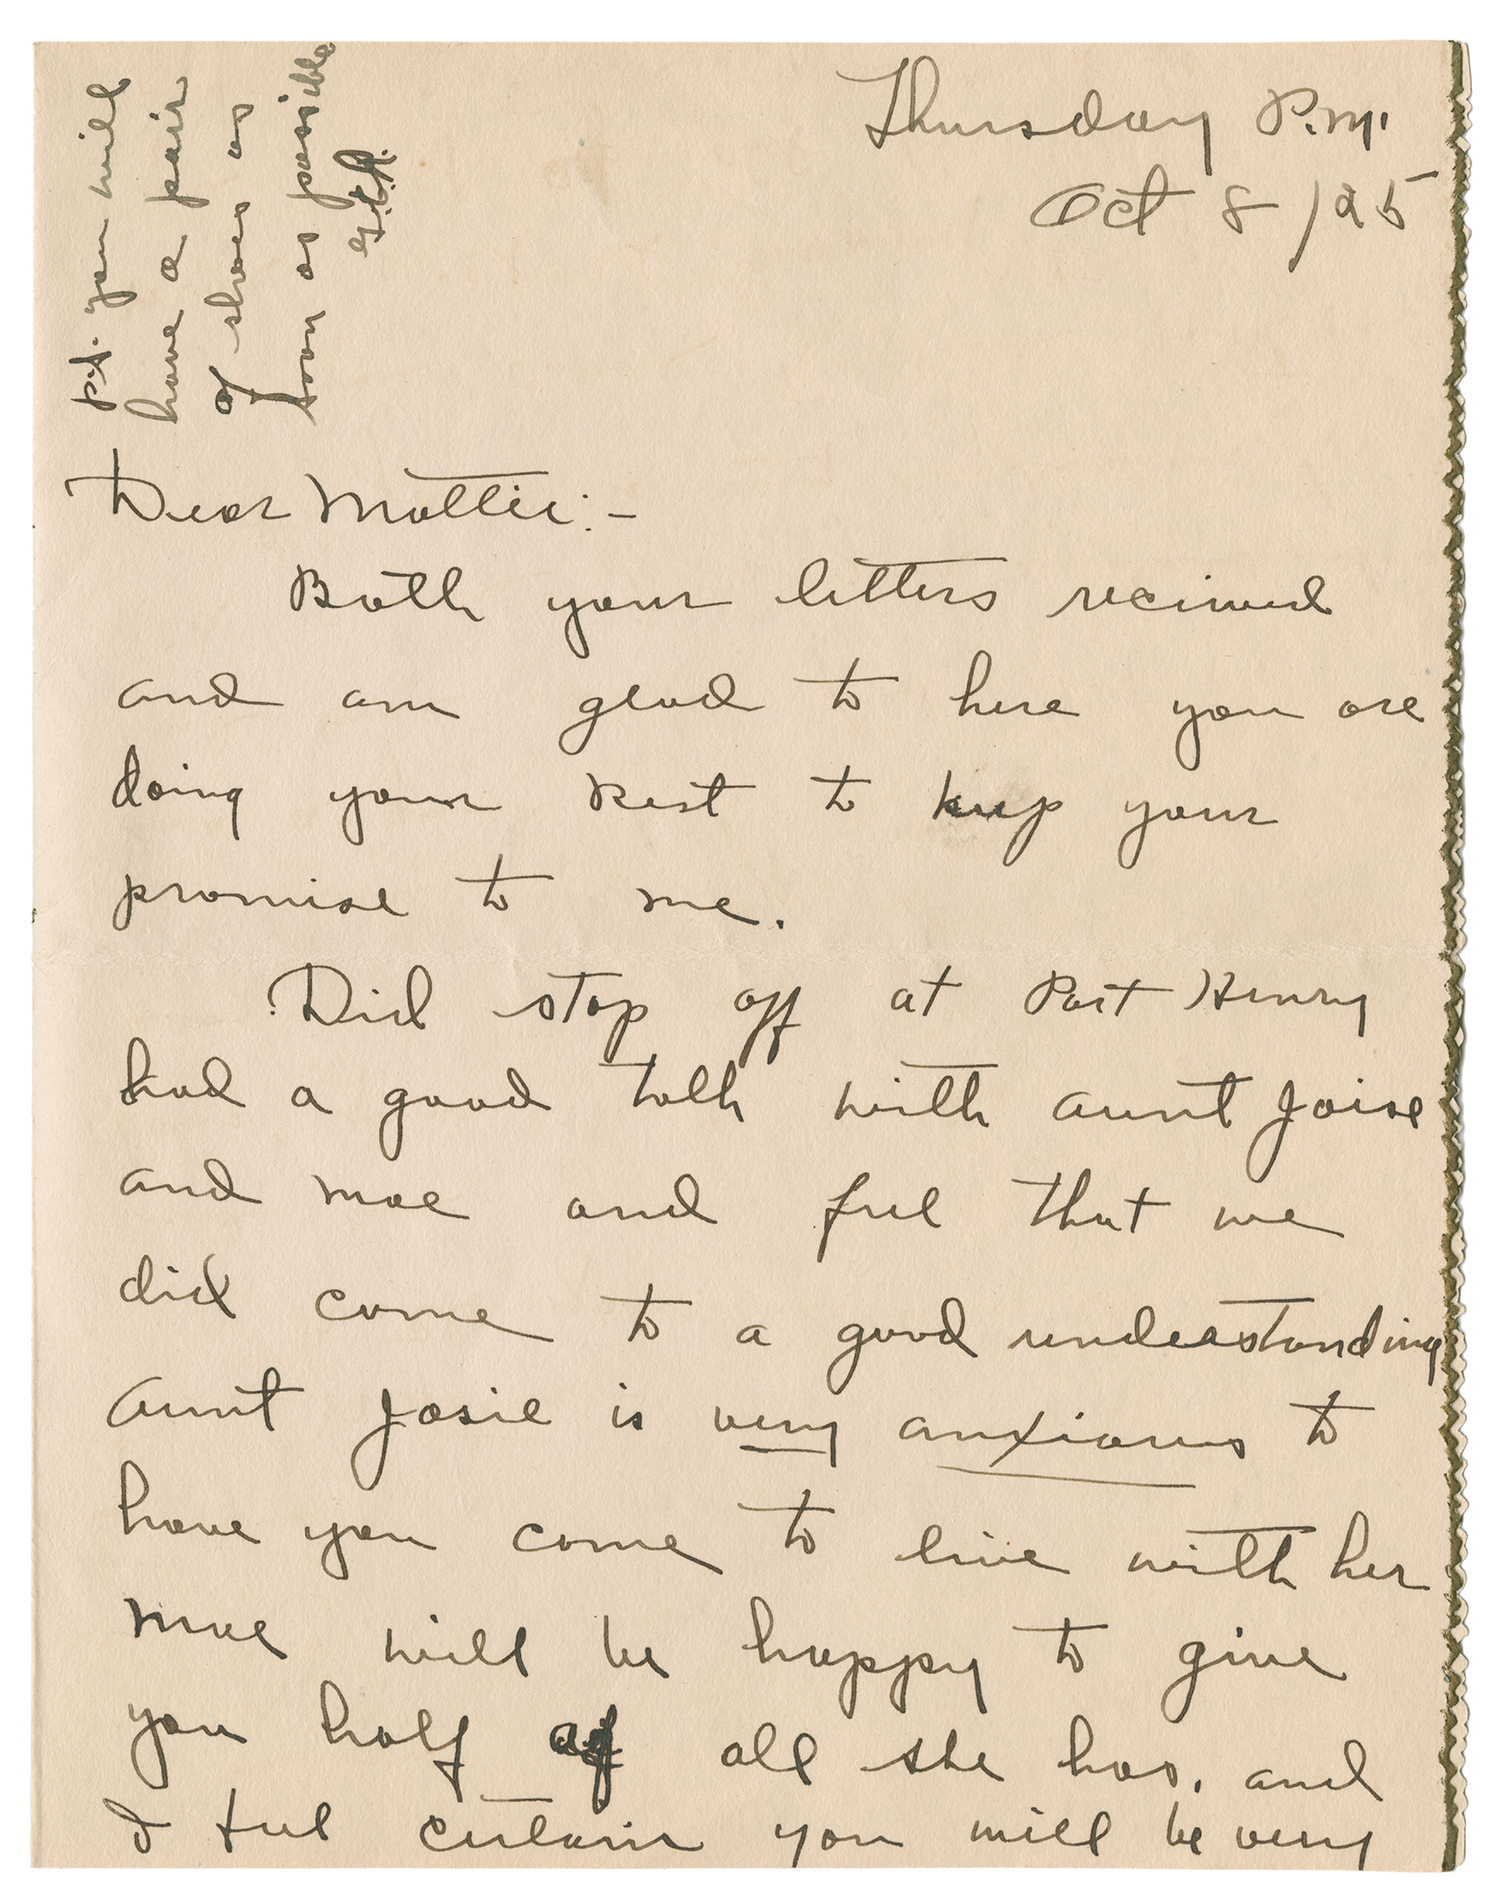 Thursday P.M.
Oct 8/25
P.S. you will
have a pair
of shoes as
soon as possible
Dear Mattie:-
Both your letters recived
and am glad to here you are
doing your best to keep your
promise to me.
Did stop off at Port Henry
had a good talk with aunt Joise
and mae and feel that we
did come to a good understanding
aunt Josie is very anxious to
have you come to live with her
mae will be happy to give
you half of all she has. and
I feel certain you will be very